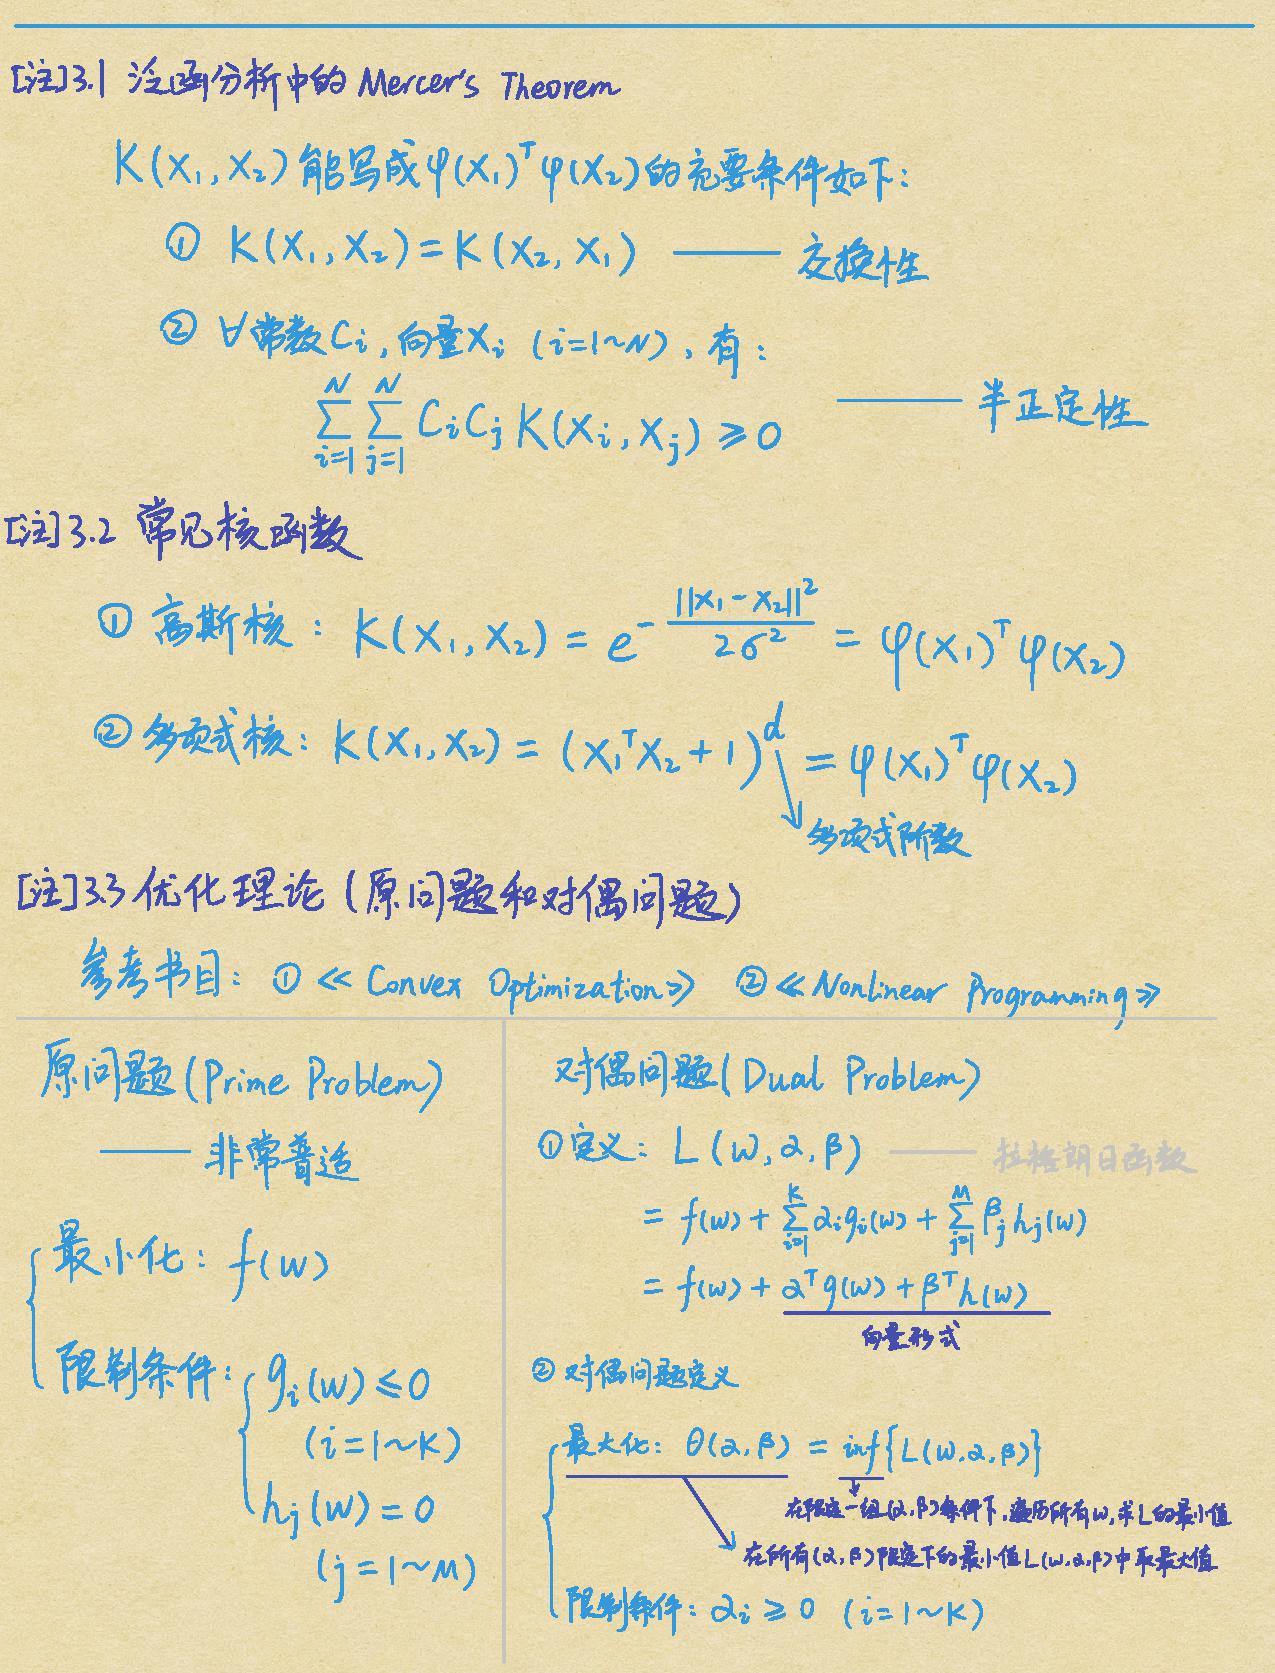 [注]3.1 泛函分析中的Mercer's Theorem
K(X₁, X₂)能写成φ(X₁)ᵀφ(X₂)的充要条件如下:
① K(X₁, X₂) = K(X₂, X₁) —— 交换性
② ∀常数Cᵢ, 向量Xᵢ (i=1~N), 有:
∑_{i=1}^{N} ∑_{j=1}^{N} CᵢCⱼK(Xᵢ, Xⱼ) ≥ 0 —— 半正定性
[注]3.2 常见核函数
① 高斯核: K(X₁, X₂) = e^{-\frac{||X₁-X₂||²}{2σ²}} = φ(X₁)ᵀφ(X₂)
② 多项式核: K(X₁, X₂) = (X₁ᵀX₂+1)^d = φ(X₁)ᵀφ(X₂)
多项式阶数
[注]3.3 优化理论(原问题和对偶问题)
参考书目: ① 《Convex Optimization》 ② 《Nonlinear Programming》
原问题(Prime Problem)
—— 非常普适
最小化: f(w)
限制条件: gᵢ(w) ≤ 0
(i=1~K)
hⱼ(w) = 0
(j=1~M)
对偶问题(Dual Problem)
① 定义: L(w, α, β) —— 拉格朗日函数
= f(w) + ∑_{i=1}^{K} αᵢgᵢ(w) + ∑_{j=1}^{M} βⱼhⱼ(w)
= f(w) + αᵀg(w) + βᵀh(w)
向量形式
② 对偶问题定义
最大化: θ(α, β) = inf{L(w, α, β)}
在限定一组(α, β)条件下, 遍历所有w, 求L的最小值
在所有(α, β)限定下的最小值L(w, α, β)中取最大值
限制条件: αᵢ ≥ 0 (i=1~K)